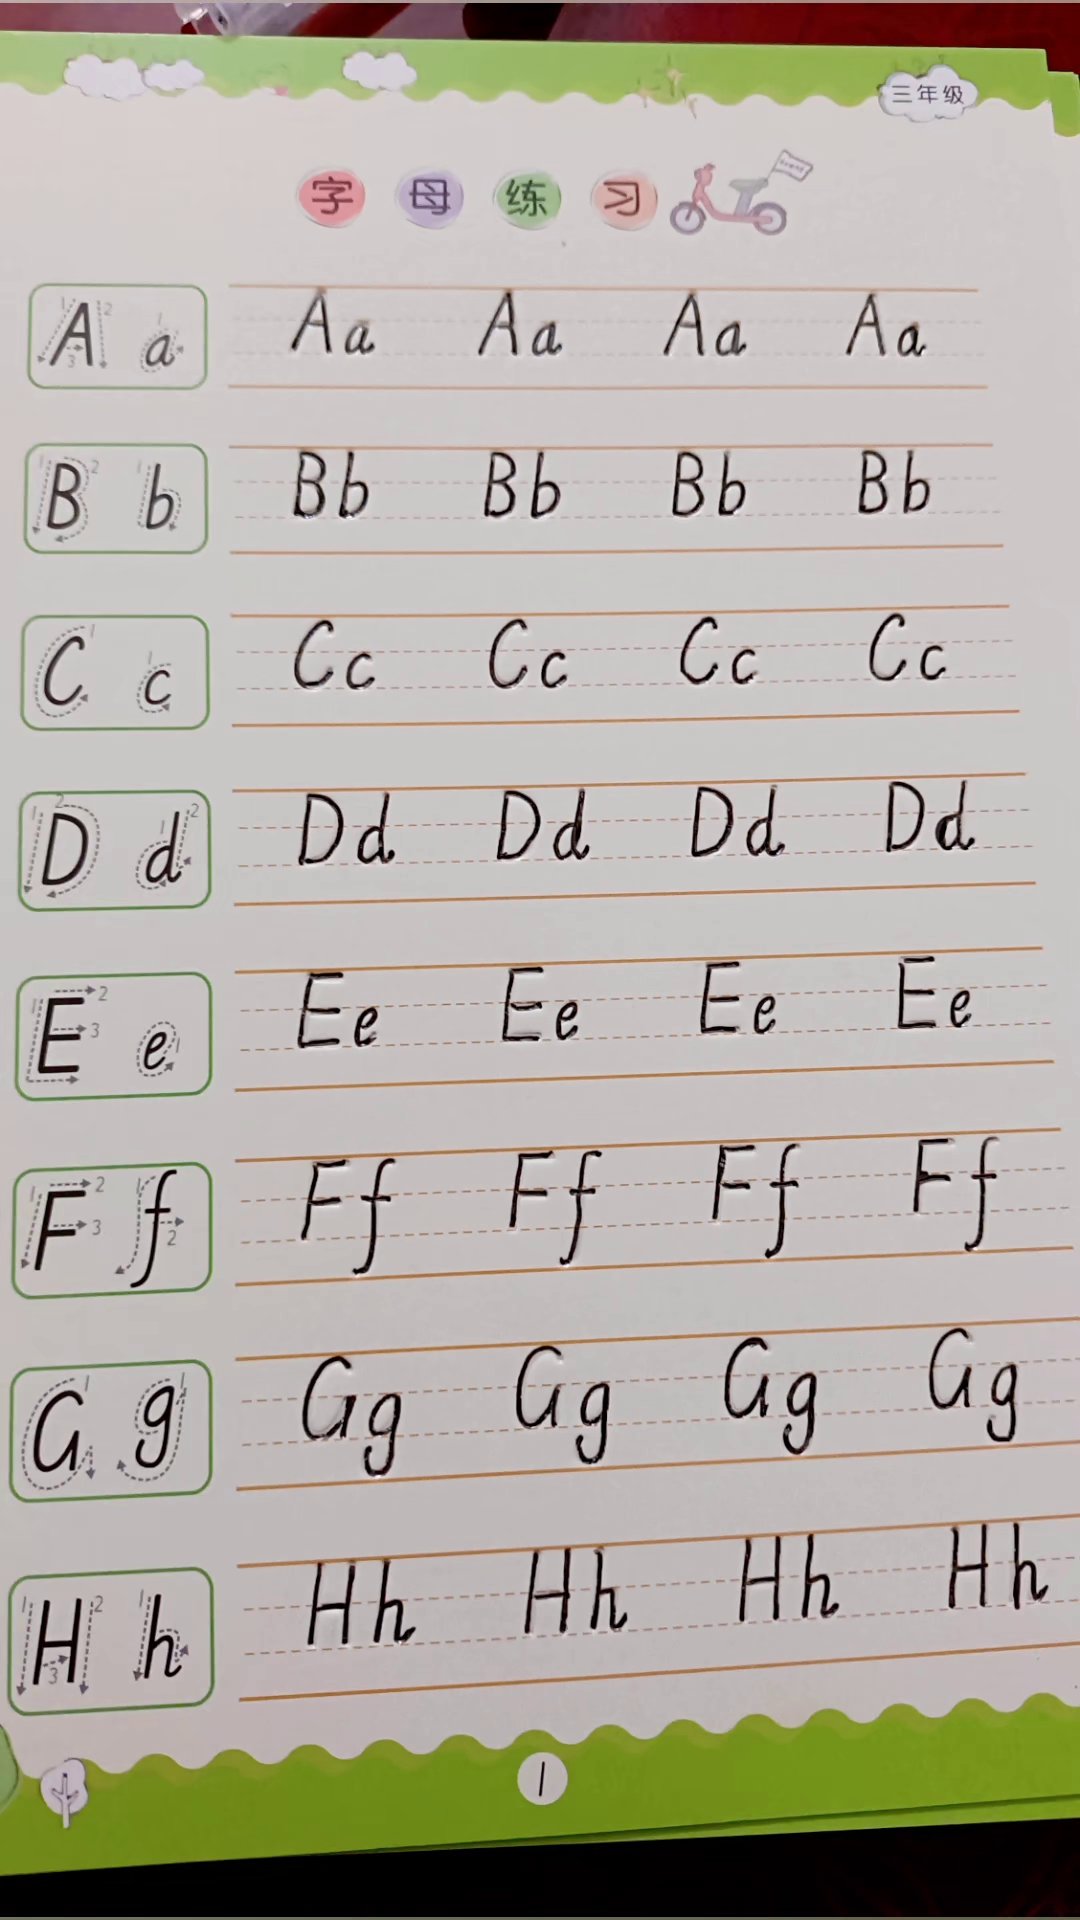 三年级
字母练习
A a Aa Aa Aa Aa
B b Bb Bb Bb Bb
C c Cc Cc Cc Cc
D d Dd Dd Dd Dd
E e Ee Ee Ee Ee
F f Ff Ff Ff Ff
G g Gg Gg Gg Gg
H h Hh Hh Hh Hh
1